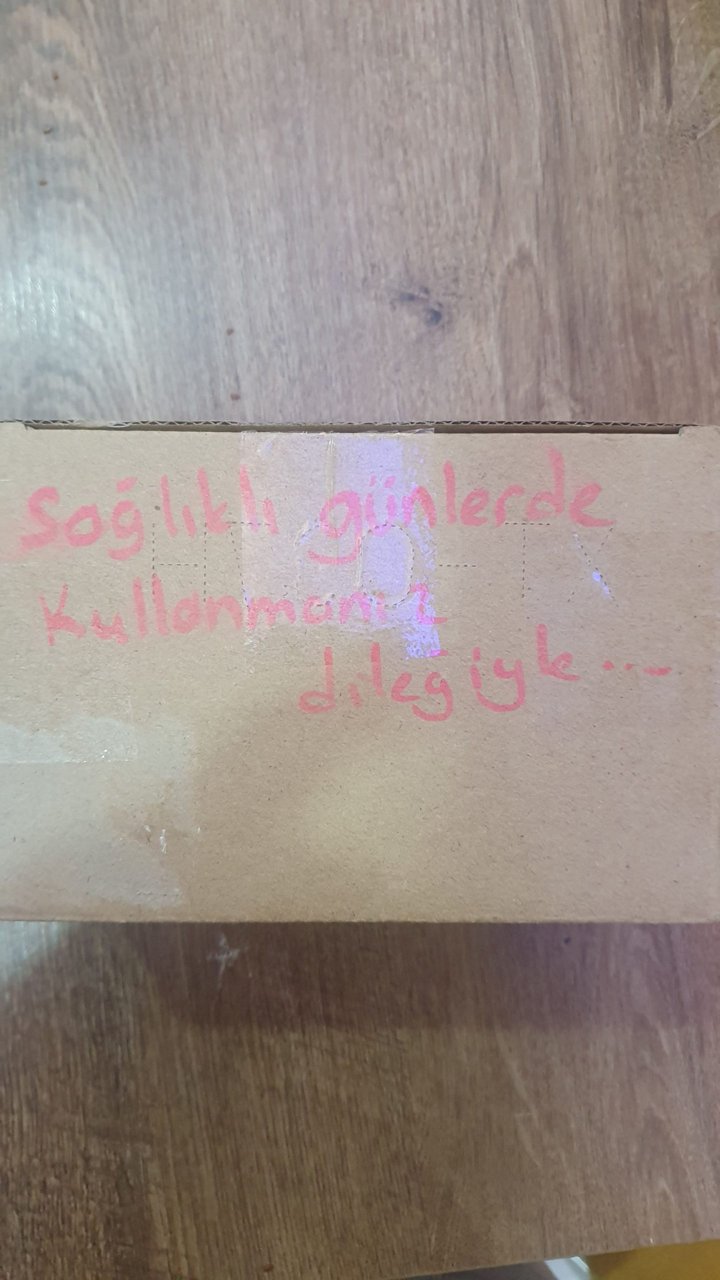 Sağlıklı günlerde
Kullanmanız
dileğiyle...